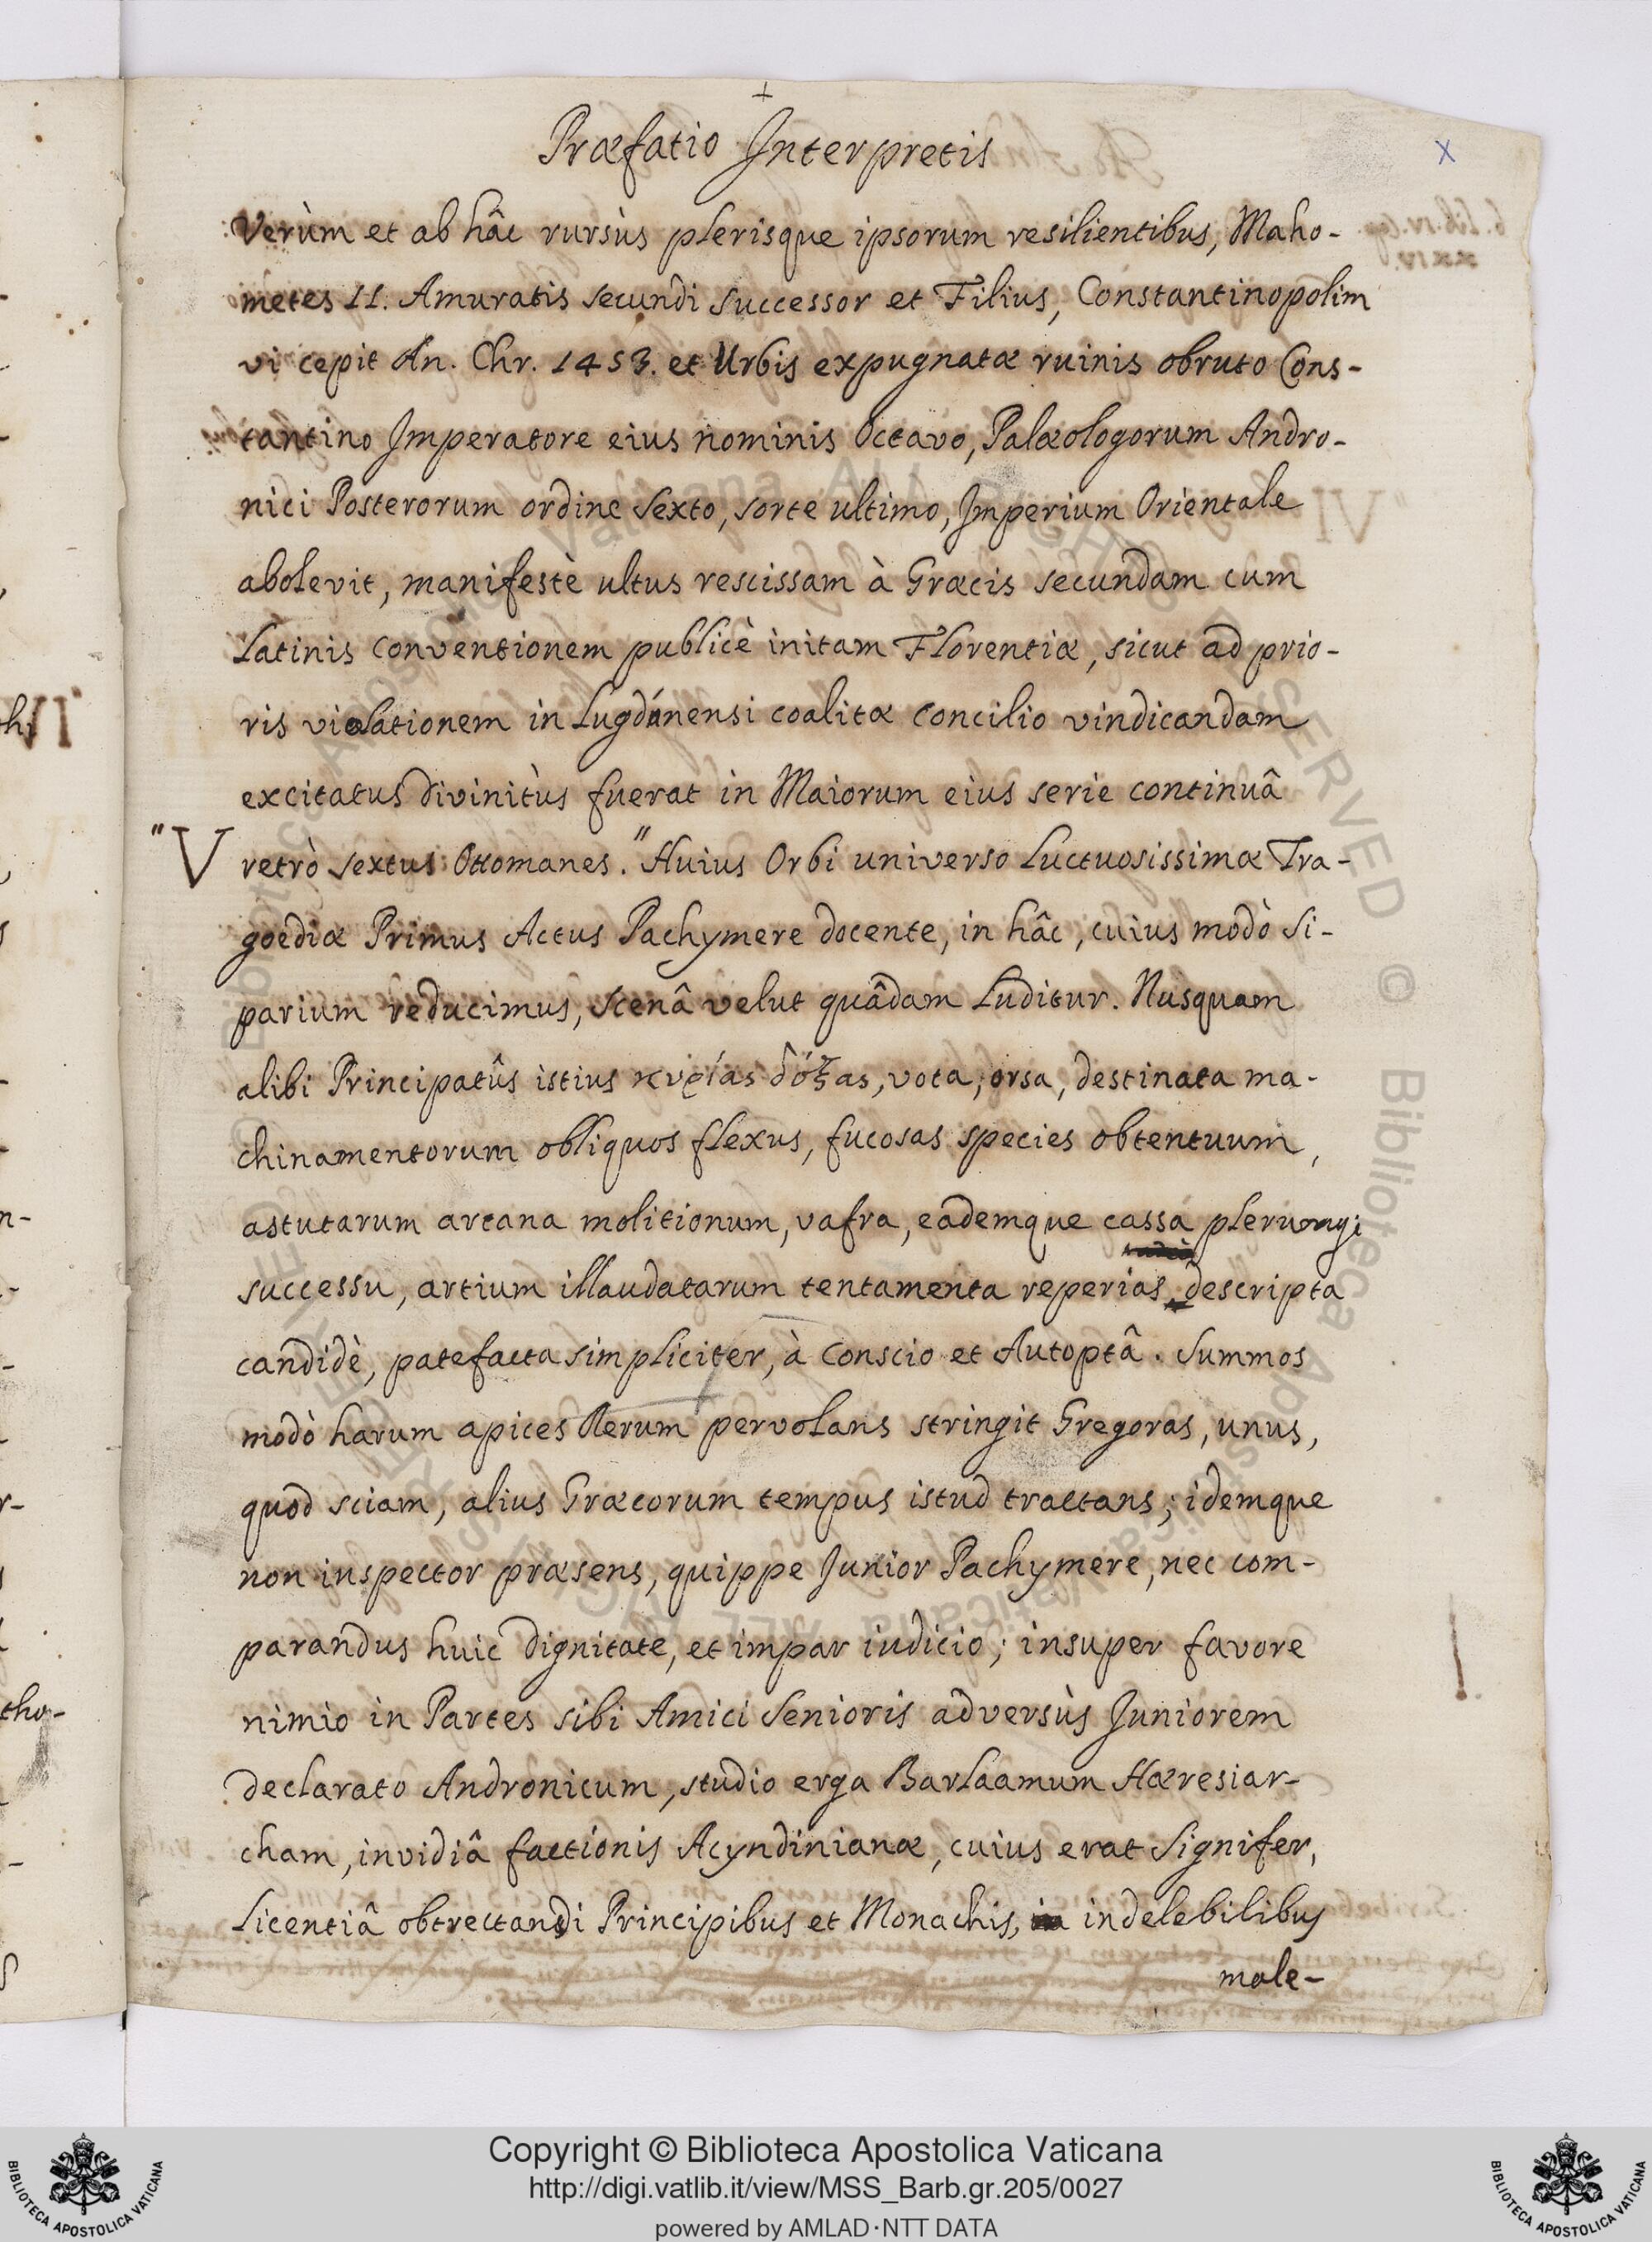 Præfatio Interpretis
Verùm et ab hâc rursùs plerisque ipsorum resilientibus, Maho-
metes II. Amuratis secundi successor et Filius, Constantinopolim
vi cepit An. Chr. 1453. et Urbis expugnatæ ruinis obruto Cons-
tantino Imperatore eius nominis Octavo, Palæologorum Andro-
nici Posterorum ordine sexto, sorte ultimo, Imperium Orientale
abolevit, manifestè ultus rescissam à Græcis secundam cum
Latinis conventionem publicè initam Florentiæ, sicut ad prio-
ris violationem in Lugdunensi coalitæ Concilio vindicandam
excitatus divinitùs fuerat in Maiorum eius serie continuâ
"V retrò sextus Ottomanes." Huius Orbi universo luctuosissimæ Tra-
goediæ Primus Actus Pachymere docente, in hâc, cuius modò si-
parium reducimus, scenâ velut quâdam luditur. Nusquam
alibi Principatûs istius κυρίας δόξας, vota, orsa, destinata ma-
chinamentorum obliquos flexus, fucosas species obtentuum,
astutarum arcana molitionum, vafra, eâdemque cassa plerumq;
successu, artium illaudatarum tentamenta reperias descripta
candidè, patefacta simpliciter, à conscio et Autoptâ. Summos
modò harum apices Rerum pervolans stringit Gregoras, unus,
quod sciam, alius Græcorum tempus istud tractans; idemque
non inspector præsens, quippe Junior Pachymere, nec com-
parandus huic dignitate, et impar iudicio; insuper favore
nimio in Partes sibi Amici Senioris adversùs Juniorem
declarato Andronicum, studio erga Barlaamum Hæresiar-
cham, invidiâ factionis Acyndinianæ, cuius erat Signifer,
Licentiâ obtrectandi Principibus et Monachis, indelebilibus
male-
Copyright © Biblioteca Apostolica Vaticana
http://digi.vatlib.it/view/MSS_Barb.gr.205/0027
powered by AMLAD·NTT DATA
BIBLIOTECA APOSTOLICA VATICANA
BIBLIOTECA APOSTOLICA VATICANA